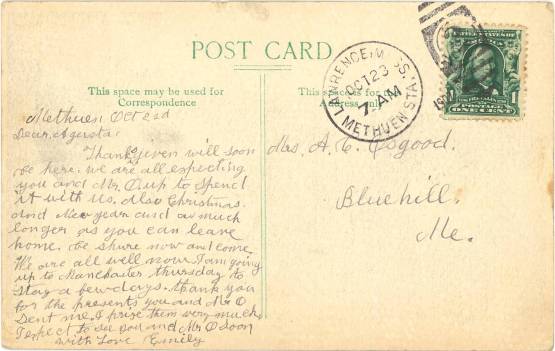 POST CARD
This space may be used for
Correspondence
This space is for
Address only
LAWRENCE, MASS.
OCT 23
7 - AM
METHUEN STA.
ONE CENT
1
Methuen Oct 22d
Dear
Thanksgiven will soon
be here. we are all expecting
you and Mr. O up to spend
it with us. Also Christmas.
And New year and as much
longer as you can leave
home. be shure now and come.
We are all well now. I am going
up to Manchester thursday to
stay a few days. thank you
for the presents you and Mr O
Sent me. I prize them very much.
I expect to see you and Mr O soon
with Love Emily
Mrs. A. C. Osgood.
Bluehill.
Me.